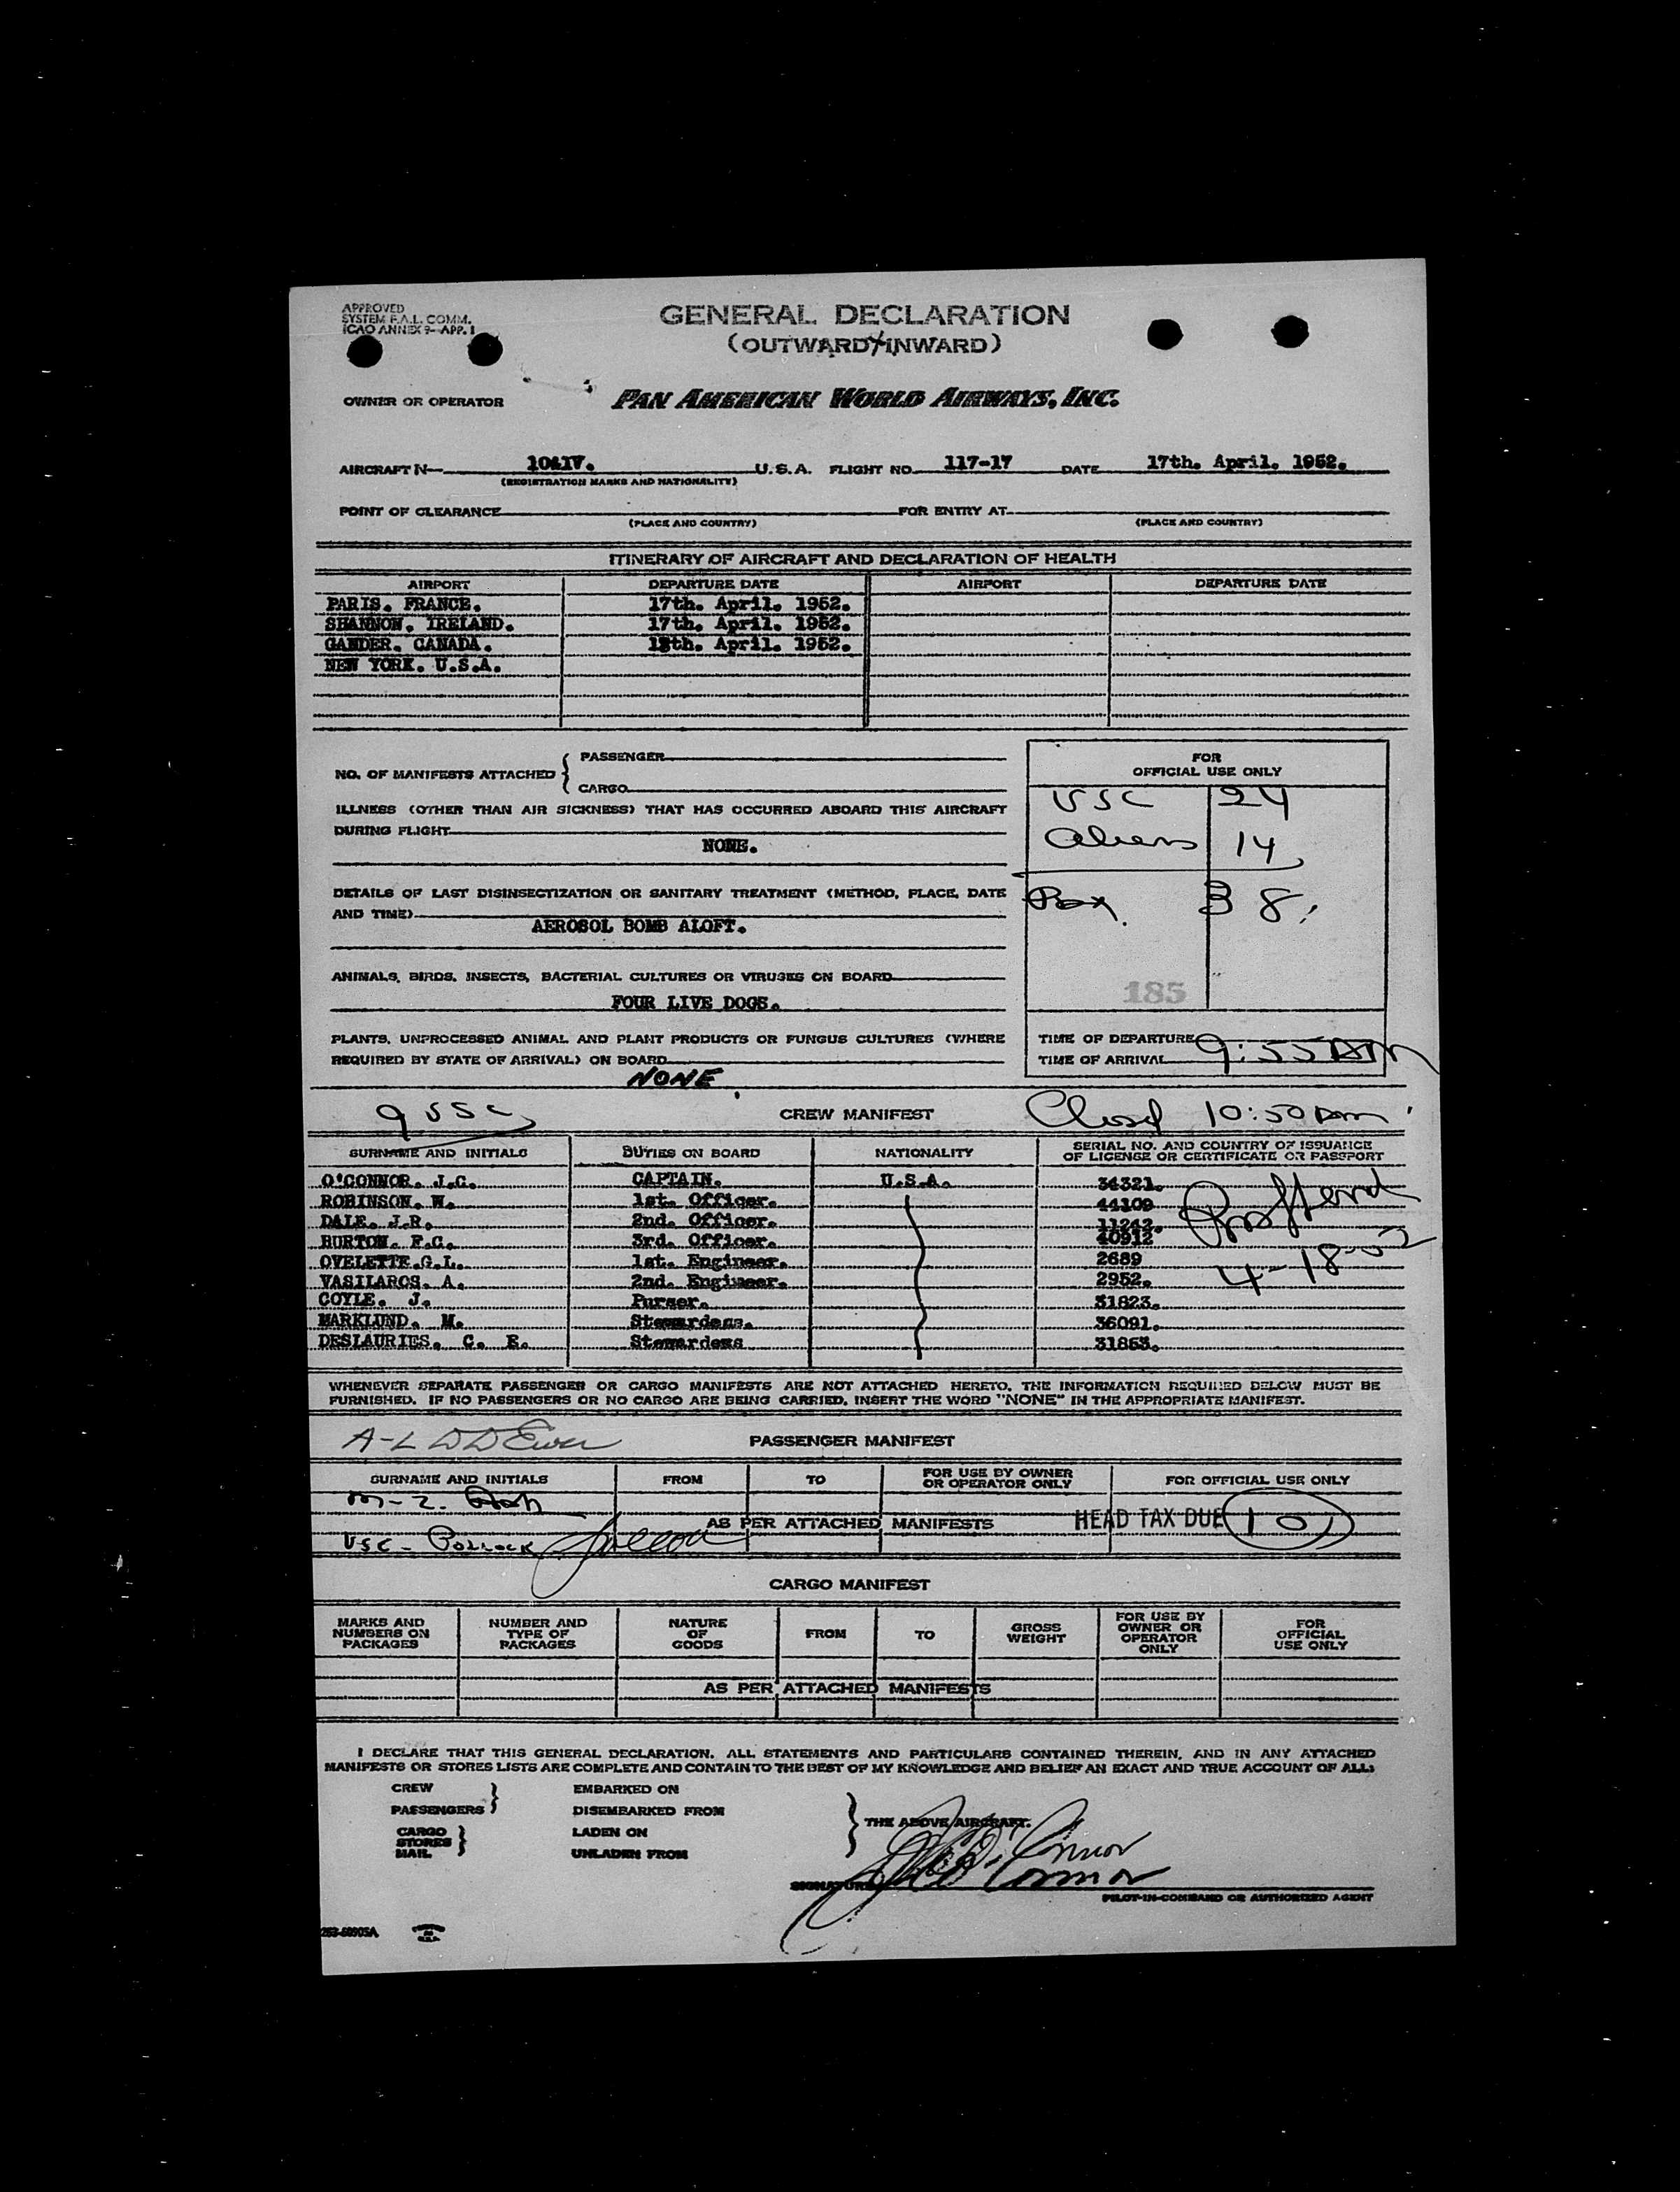 APPROVED
SYSTEM F.A.L. COMM.
ICAO ANNEX 9—APP. 1
GENERAL DECLARATION
(OUTWARD/INWARD)
OWNER OR OPERATOR PAN AMERICAN WORLD AIRWAYS, INC.
AIRCRAFT N— U.S.A. FLIGHT NO. 117-17 DATE 17th. April. 1952.
(REGISTRATION MARKS AND NATIONALITY)
POINT OF CLEARANCE FOR ENTRY AT
(PLACE AND COUNTRY) (PLACE AND COUNTRY)
ITINERARY OF AIRCRAFT AND DECLARATION OF HEALTH
AIRPORT DEPARTURE DATE AIRPORT DEPARTURE DATE
PARIS. FRANCE. 17th. April. 1952.
SHANNON. IRELAND. 17th. April. 1952.
GANDER. CANADA. 18th. April. 1952.
NEW YORK. U.S.A.
NO. OF MANIFESTS ATTACHED { PASSENGER
CARGO
ILLNESS (OTHER THAN AIR SICKNESS) THAT HAS OCCURRED ABOARD THIS AIRCRAFT
DURING FLIGHT
NONE.
DETAILS OF LAST DISINSECTIZATION OR SANITARY TREATMENT (METHOD, PLACE, DATE
AND TIME)
AEROSOL BOMB ALOFT.
ANIMALS, BIRDS, INSECTS, BACTERIAL CULTURES OR VIRUSES ON BOARD
FOUR LIVE DOGS.
PLANTS, UNPROCESSED ANIMAL AND PLANT PRODUCTS OR FUNGUS CULTURES (WHERE
REQUIRED BY STATE OF ARRIVAL) ON BOARD
NONE
FOR
OFFICIAL USE ONLY
USC 24
Aliens 14
Pax. 38
185
TIME OF DEPARTURE
TIME OF ARRIVAL 9:55 AM
9 USC CREW MANIFEST Closed 10:50 AM
SURNAME AND INITIALS DUTIES ON BOARD NATIONALITY SERIAL NO. AND COUNTRY OF ISSUANCE
OF LICENSE OR CERTIFICATE OR PASSPORT
O'CONNOR. J.C. CAPTAIN. U.S.A. 34321.
ROBINSON. W. 1st. Officer. 44109
DALE. J.R. 2nd. Officer. 11242.
BURTON. F.C. 3rd. Officer. 40912
OVELETTE.G.L. 1st. Engineer. 2689
VASILAROS. A. 2nd. Engineer. 2952.
COYLE. J. Purser. 31823.
MARKLUND. M. Stewardess. 36091.
DESLAURIES. C. E. Stewardess 31863.
4-18-52
WHENEVER SEPARATE PASSENGER OR CARGO MANIFESTS ARE NOT ATTACHED HERETO, THE INFORMATION REQUIRED BELOW MUST BE
FURNISHED. IF NO PASSENGERS OR NO CARGO ARE BEING CARRIED, INSERT THE WORD "NONE" IN THE APPROPRIATE MANIFEST.
A-L PASSENGER MANIFEST
SURNAME AND INITIALS FROM TO FOR USE BY OWNER
OR OPERATOR ONLY FOR OFFICIAL USE ONLY
M-Z.
AS PER ATTACHED MANIFESTS HEAD TAX DUE 10
USC - Pollock
CARGO MANIFEST
MARKS AND
NUMBERS ON
PACKAGES
NUMBER AND
TYPE OF
PACKAGES
NATURE
OF
GOODS
FROM
TO
GROSS
WEIGHT
FOR USE BY
OWNER OR
OPERATOR
ONLY
FOR
OFFICIAL
USE ONLY
AS PER ATTACHED MANIFESTS
I DECLARE THAT THIS GENERAL DECLARATION, ALL STATEMENTS AND PARTICULARS CONTAINED THEREIN, AND IN ANY ATTACHED
MANIFESTS OR STORES LISTS ARE COMPLETE AND CONTAIN TO THE BEST OF MY KNOWLEDGE AND BELIEF AN EXACT AND TRUE ACCOUNT OF ALL:
CREW } EMBARKED ON
PASSENGERS DISEMBARKED FROM
CARGO LADEN ON
STORES
MAIL UNLADEN FROM
} THE ABOVE AIRCRAFT.
SIGNATURE J.C. O'Connor
PILOT-IN-COMMAND OR AUTHORIZED AGENT